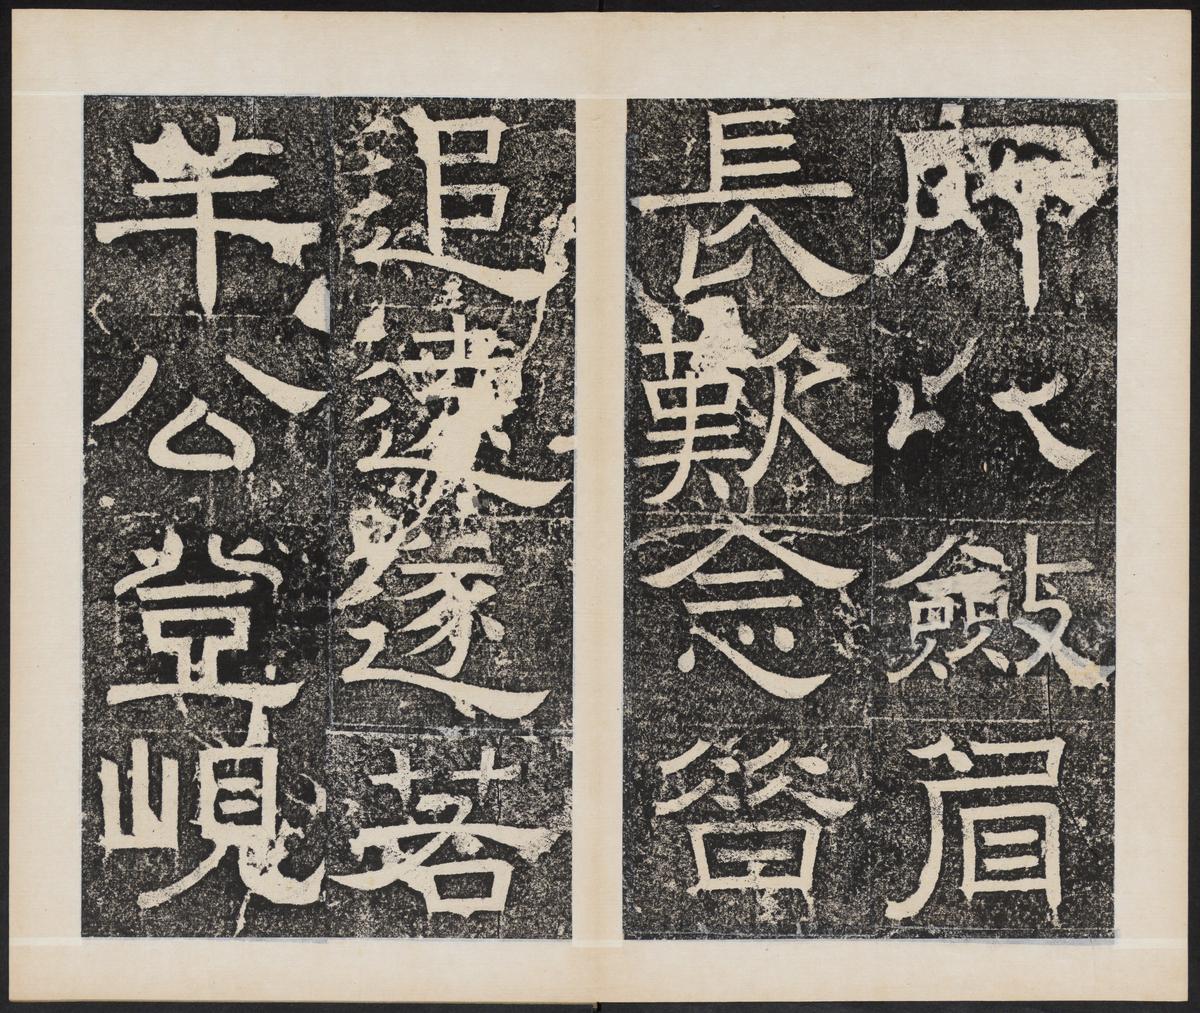 所以斂眉
長歎念昔
追遠遂若
羊公登峴